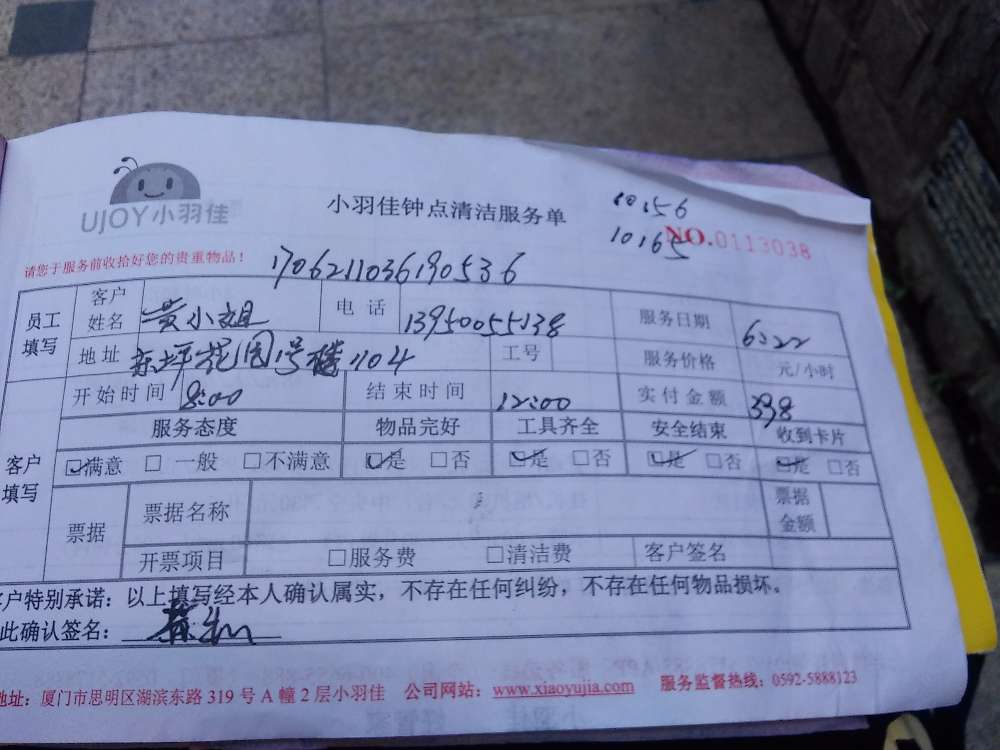 UJOY小羽佳
小羽佳钟点清洁服务单
10156
10165
NO.0113038
请您于服务前收拾好您的贵重物品！
170621103619053 6
员工填写 客户姓名 黄小姐 电话 13950055138 服务日期 6:22
地址 东坪花园1号楼104 工号 服务价格 元/小时
开始时间 8:00 结束时间 12:00 实付金额 398
客户填写 服务态度 物品完好 工具齐全 安全结束 收到卡片
☑满意 □一般 □不满意 ☑是 □否 ☑是 □否 ☑是 □否 ☑是 □否
票据 票据名称 票据金额
开票项目 □服务费 □清洁费 客户签名
客户特别承诺：以上填写经本人确认属实，不存在任何纠纷，不存在任何物品损坏。
此确认签名：
地址：厦门市思明区湖滨东路 319 号 A 幢 2 层小羽佳 公司网站：www.xiaoyujia.com 服务监督热线：0592-5888123